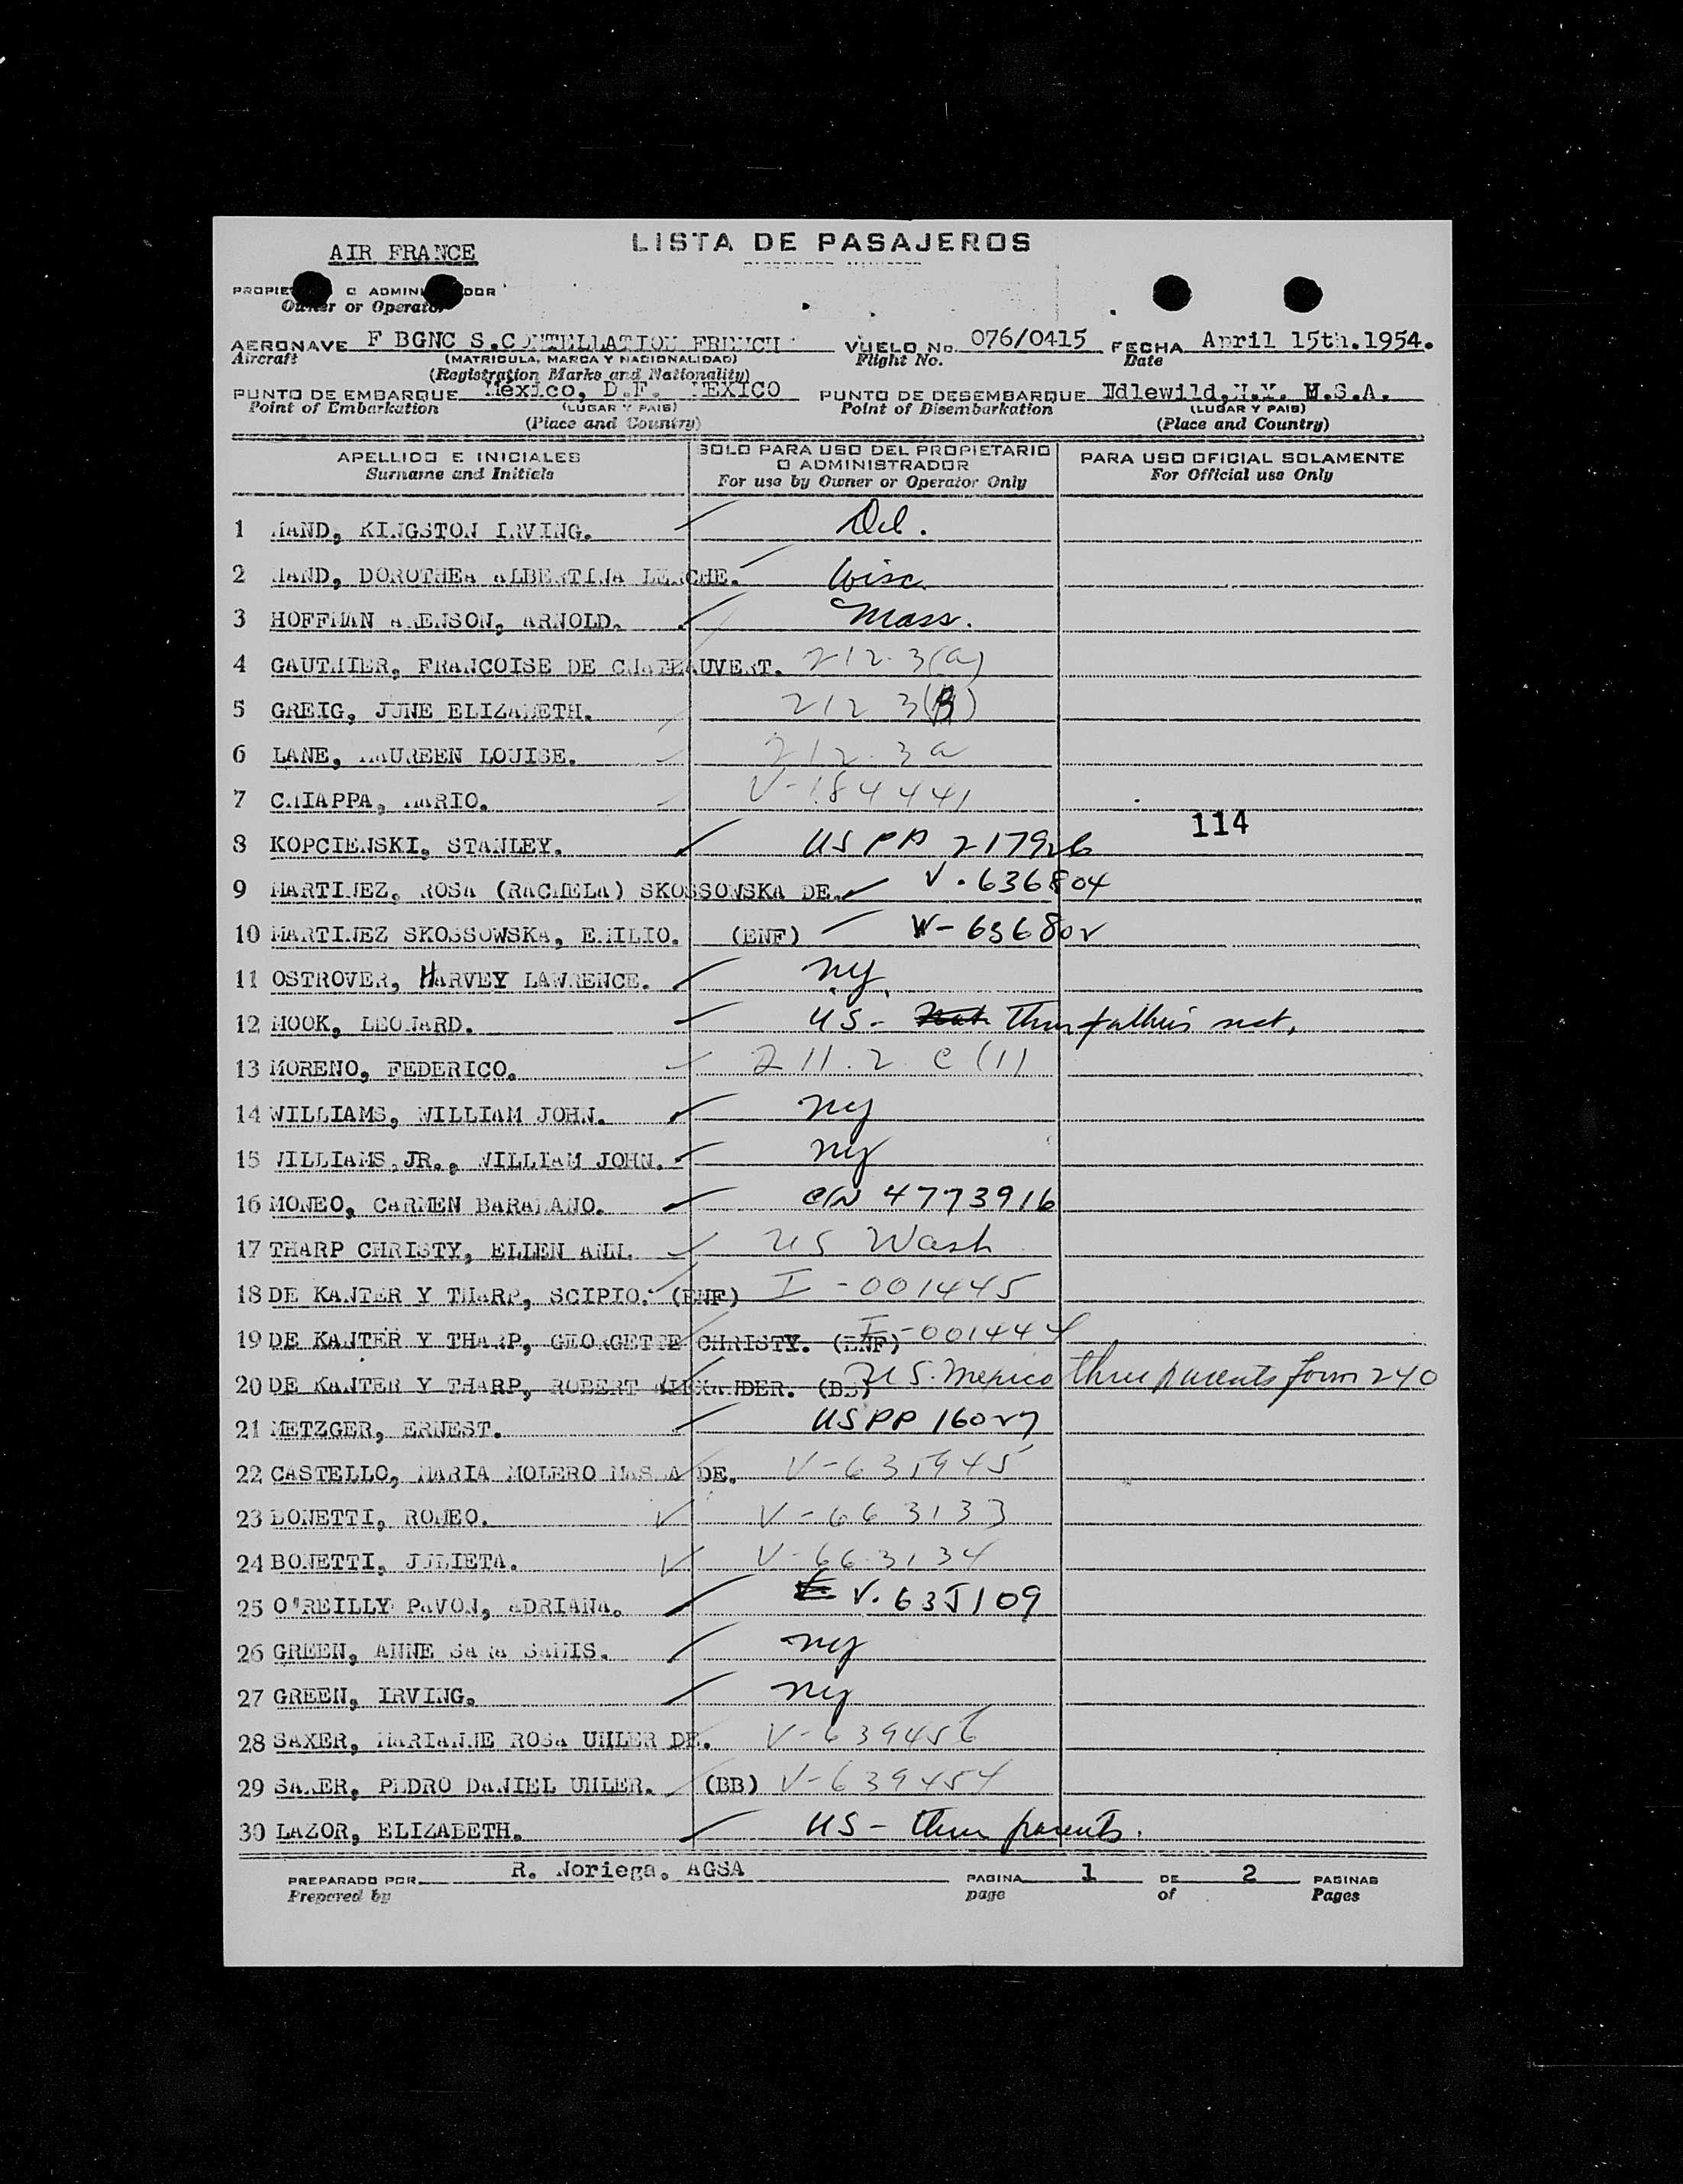 AIR FRANCE
LISTA DE PASAJEROS
PASSENGER MANIFEST
O ADMINI DOR
Owner or Operator
AERONAVE F BGNC S.CONTELLATION FRENCH VUELO No. 076/0415 FECHA April 15th.1954.
Aircraft (MATRICULA, MARCA Y NACIONALIDAD) Flight No. Date
(Registration Marks and Nationality)
PUNTO DE EMBARQUE México, D.F. MEXICO PUNTO DE DESEMBARQUE Idlewild,N.Y. U.S.A.
Point of Embarkation (LUGAR Y PAIS) Point of Disembarkation (LUGAR Y PAIS)
(Place and Country) (Place and Country)
APELLIDO E INICIALES SOLO PARA USO DEL PROPIETARIO O ADMINISTRADOR PARA USO OFICIAL SOLAMENTE
Surname and Initials For use by Owner or Operator Only For Official use Only
1 HAND, KINGSTON IRVING. Del.
2 HAND, DOROTHEA ALBERTINA LERCHE. Wisc.
3 HOFFMAN ARENSON, ARNOLD. Mass.
4 GAUTHIER, FRANCOISE DE CHATEAUVERT. 212.3(a)
5 GREIG, JUNE ELIZABETH. 212 3(B)
6 LANE, MAUREEN LOUISE. 212.3 a
7 CHIAPPA, MARIO. V-184441
114
8 KOPCIENSKI, STANLEY. US PP 217926
9 MARTINEZ, ROSA (RACHELA) SKOSSOWSKA DE. V.636804
10 MARTINEZ SKOSSOWSKA, EMILIO. (ENF) V-636802
11 OSTROVER, HARVEY LAWRENCE. NY.
12 HOOK, LEONARD. US- Thru father's nat.
13 MORENO, FEDERICO. 211.2 c (1)
14 WILLIAMS, WILLIAM JOHN. NY
15 WILLIAMS,JR., WILLIAM JOHN. NY
16 MONEO, CARMEN BARANANO. C/N 4773916
17 THARP CHRISTY, ELLEN ANN. US Wash
18 DE KANTER Y THARP, SCIPIO. (ENF) I-001445
19 DE KANTER Y THARP, GEORGETTE CHRISTY. (ENF) I-001444
20 DE KANTER Y THARP, ROBERT ALEXANDER. (BB) US. Mexico thru parents form 240
21 METZGER, ERNEST. USPP 16027
22 CASTELLO, MARIA MOLERO DE. V-631945
23 BONETTI, ROMEO. V-663133
24 BONETTI, JULIETA. V-663134
25 O'REILLY PAVON, ADRIANA. V.635109
26 GREEN, ANNE SARA SAMIS. NY
27 GREEN, IRVING. NY
28 SAXER, MARIANNE ROSA UHLER DE. V-639456
29 SAXER, PEDRO DANIEL UHLER. (BB) V-639454
30 LAZOR, ELIZABETH. US- thru parents.
PREPARADO POR R. Noriega. AGSA PAGINA 1 DE 2 PAGINAS
Prepared by page of Pages